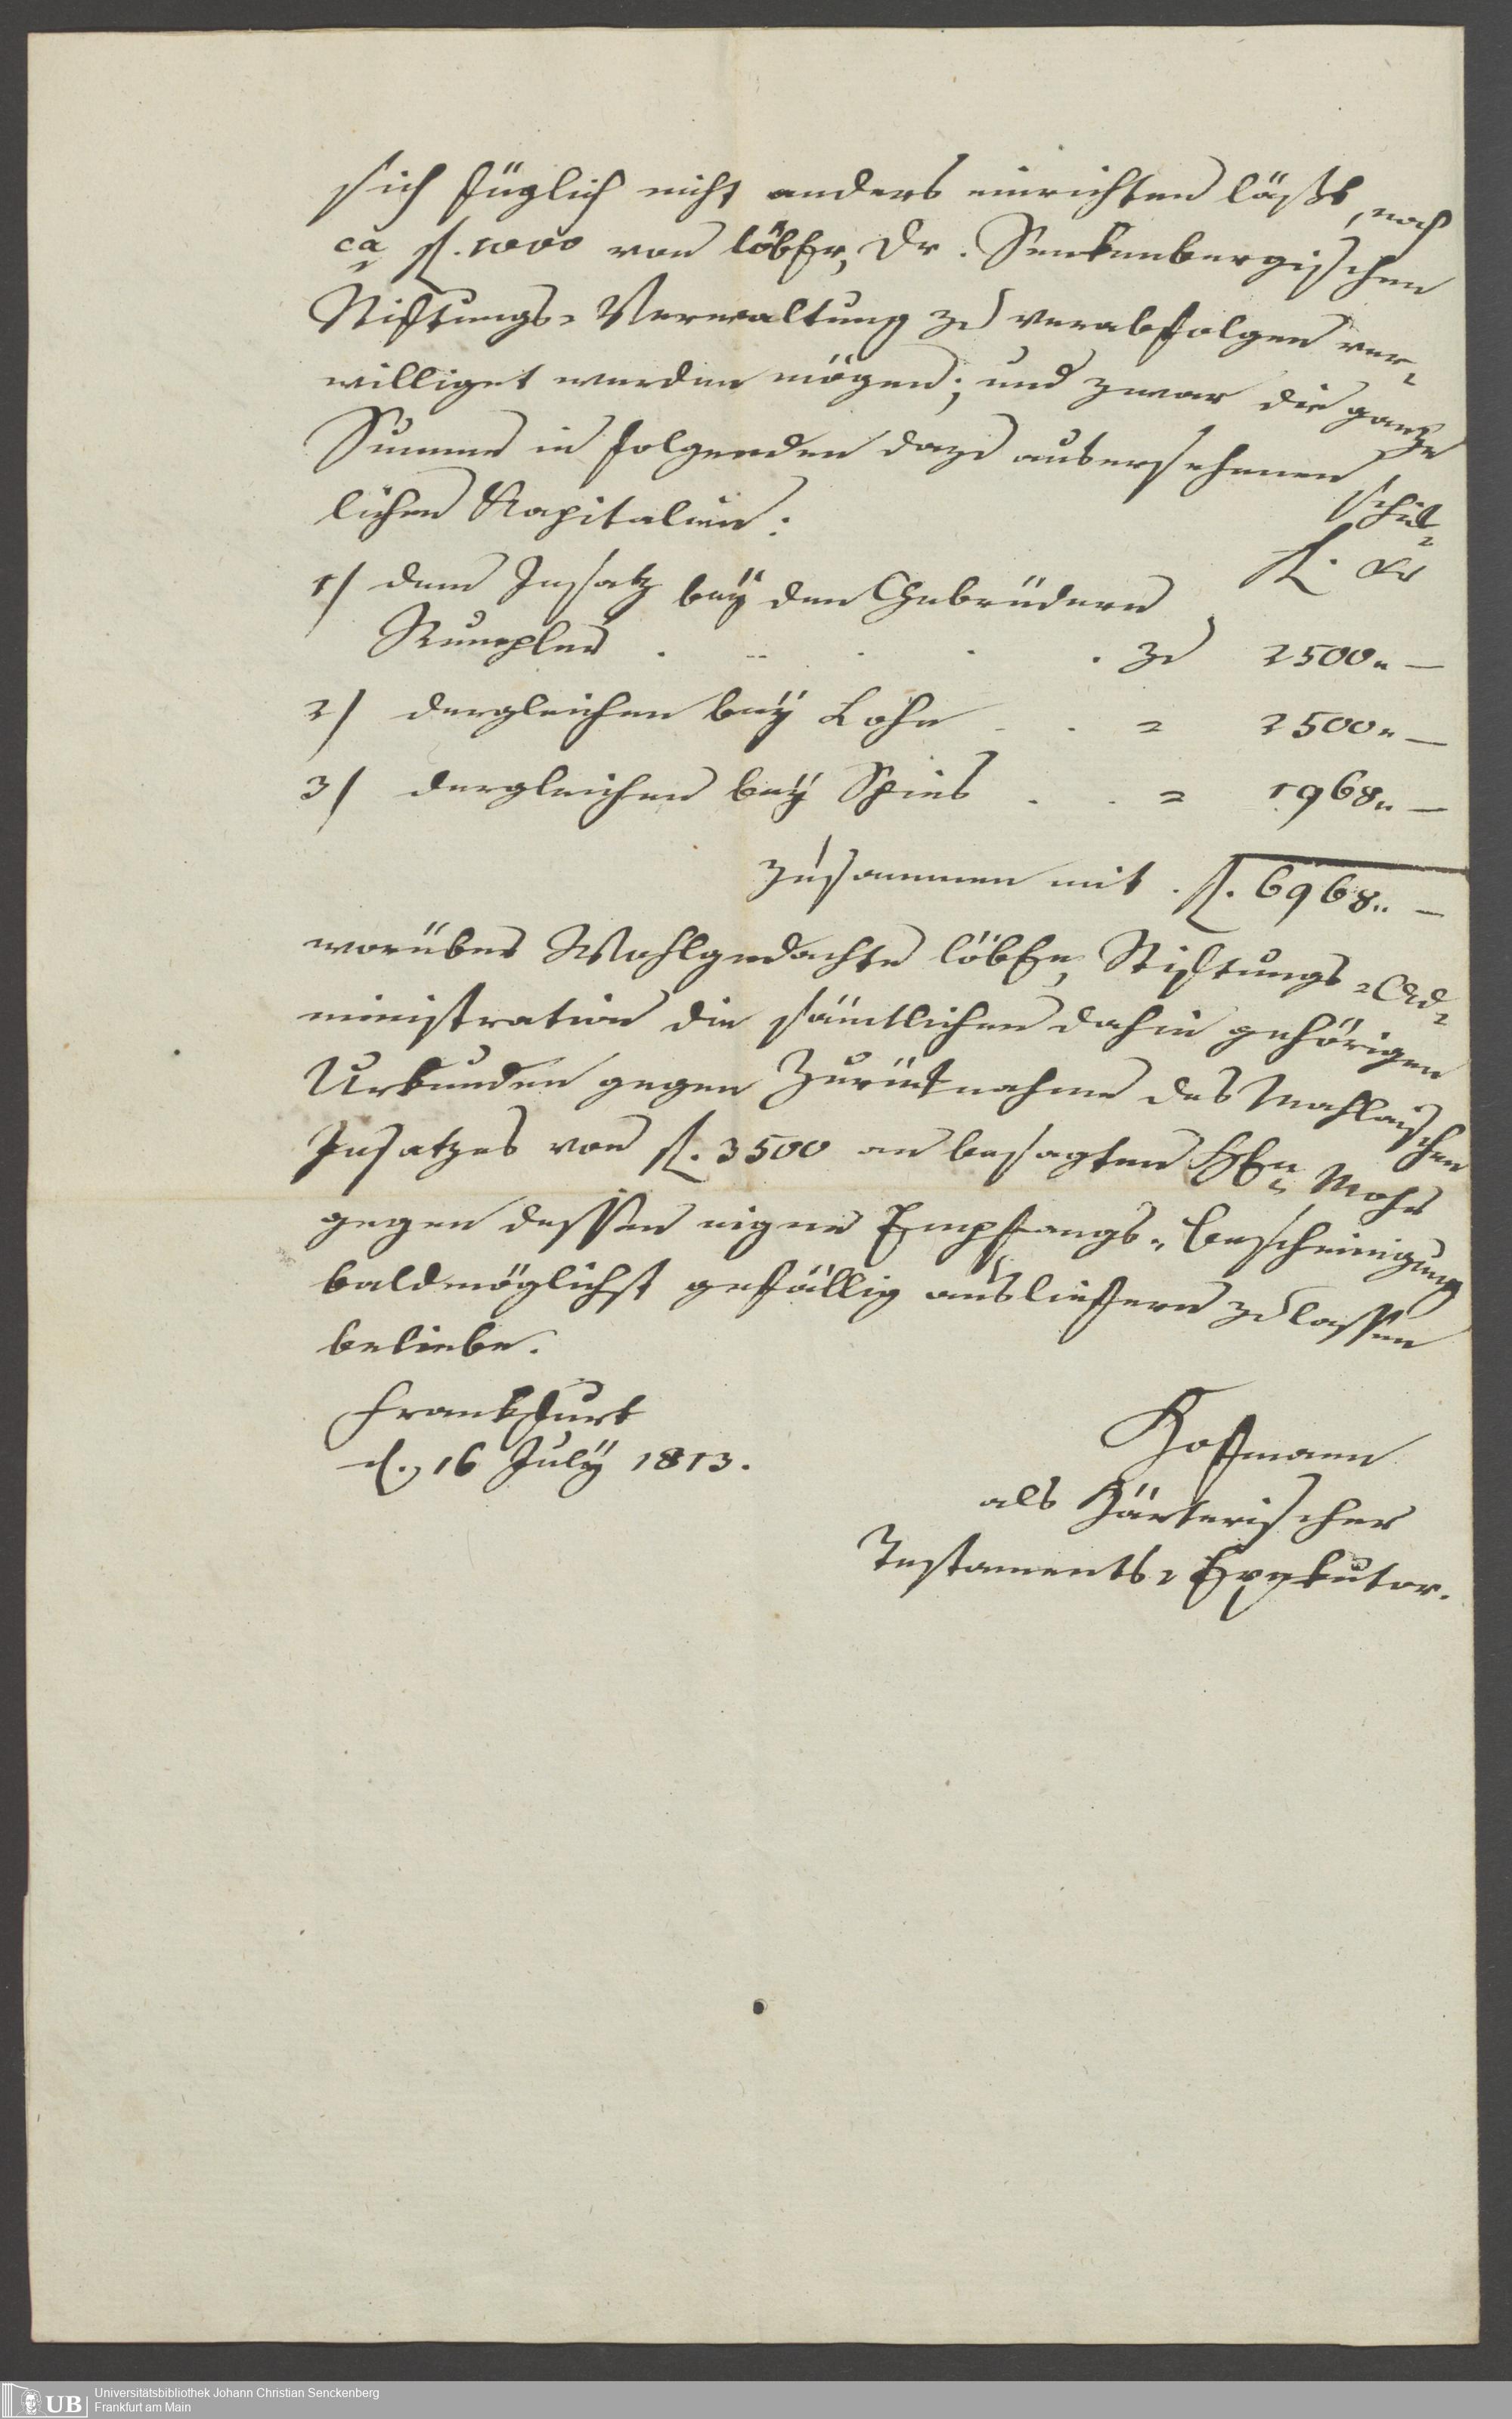 sich füglich nicht anders einrichten läßt, noch
ca fl. 1000 von löbler, Dr. Senkenbergischen
Stiftungs-Verwaltung zu verabfolgen ver-
williget werden mögen; und zwar die ganze
Summe in folgenden dazu ausersehenen
lichen Kapitalien:
fl. Kr
1/ dem Insatz bey den Gebrüdern
Rumpler . . . . . zu 2500 „ —
2/ dergleichen bey Lohr . . = 2500 „ —
3/ dergleichen bey Spies . . = 1968 „ —
zusammen mit . fl. 6968 „ —
worüber Wohlgedachte löble, Stiftungs-Ad-
ministration die sämtlichen dahin gehörigen
Urkunden gegen Zurücknahme des Mahlaischen
Insatzes von fl. 3500 an besagten HEn, Mohr
gegen dessen eigne Empfangs-Bescheinigung
baldmöglichst gefällig ausliefern zu lassen
beliebe.
Frankfurt
d. 16 July 1813.
Hoffmann
als Härterischer
Testaments-Exekutor.
Universitätsbibliothek Johann Christian Senckenberg
Frankfurt am Main
UB